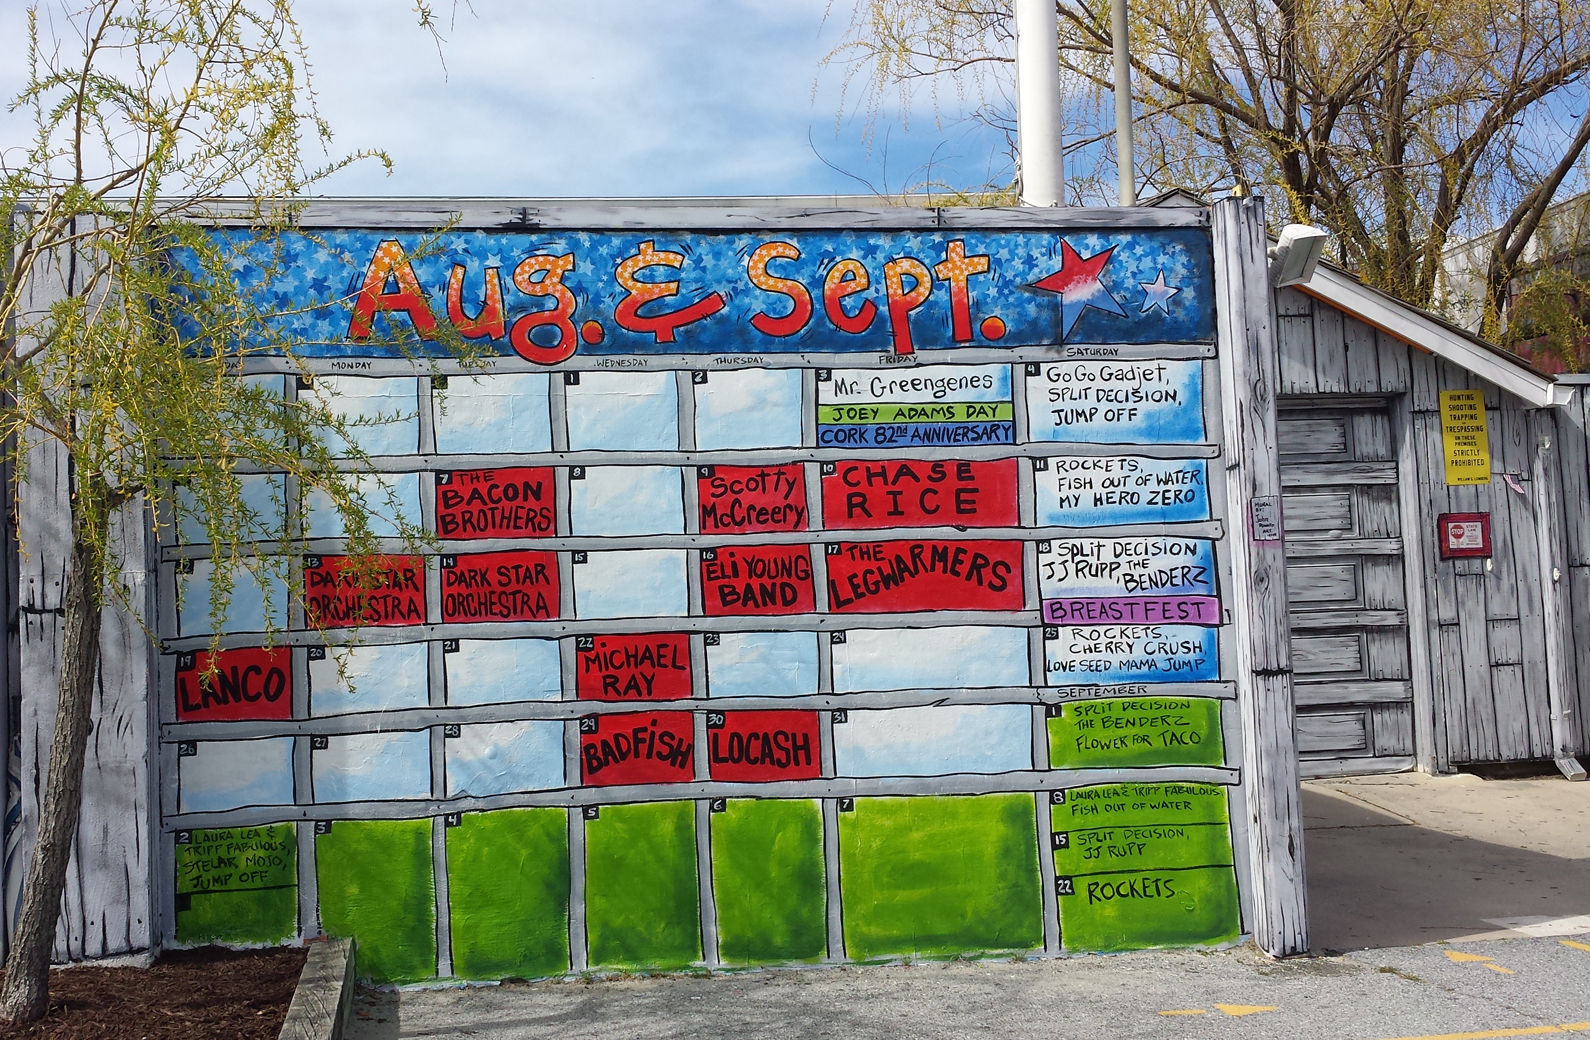 Aug. & Sept.
MONDAY
TUESDAY
WEDNESDAY
THURSDAY
FRIDAY
SATURDAY
1
2
3
Mr. Greengenes
JOEY ADAMS DAY
CORK 82nd ANNIVERSARY
4
GoGo Gadjet,
SPLIT DECISION,
JUMP OFF
7
THE
BACON
BROTHERS
8
9
Scotty
McCreery
10
CHASE
RICE
11
ROCKETS,
FISH OUT OF WATER,
MY HERO ZERO
12
13
DARK STAR
ORCHESTRA
14
DARK STAR
ORCHESTRA
15
16
ELI YOUNG
BAND
17
THE
LEGWARMERS
18
SPLIT DECISION
JJ RUPP, THE
BENDERZ
BREASTFEST
19
LANCO
20
21
22
MICHAEL
RAY
23
24
25
ROCKETS,
CHERRY CRUSH,
LOVE SEED MAMA JUMP
26
27
28
29
BADFISH
30
LOCASH
31
SEPTEMBER
1
SPLIT DECISION
THE BENDERZ
FLOWER FOR TACO
2
LAURA LEA &
TRIPP FABULOUS,
STELLAR MOJO,
JUMP OFF
3
4
5
6
7
8
LAURA LEA & TRIPP FABULOUS
FISH OUT OF WATER
15
SPLIT DECISION,
JJ RUPP
22
ROCKETS
HUNTING
SHOOTING
TRAPPING
TRESPASSING
ON THESE
PREMISES
STRICTLY
PROHIBITED
STOP
STATE
LAW